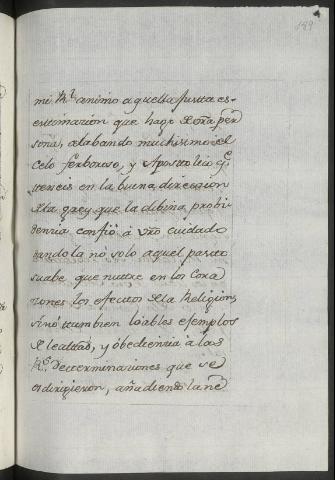 189
mi Rl. animo aquella justa es-
estimacion que hago de vra per
sona, alabando muchisimo el
celo ferboroso, y Apostolico qe.
teneis en la buena direccion
de la grey que la dibina probi
dencia confió á vro cuidado
dandola no solo aquel pasto
suabe que nutre en los Cora
zones los efectos de la Religion,
sinó tambien loables exemplos
de lealtad, y obediencia à las
Rs. Determinaciones que se
os dirigieron, añadiendo la ne